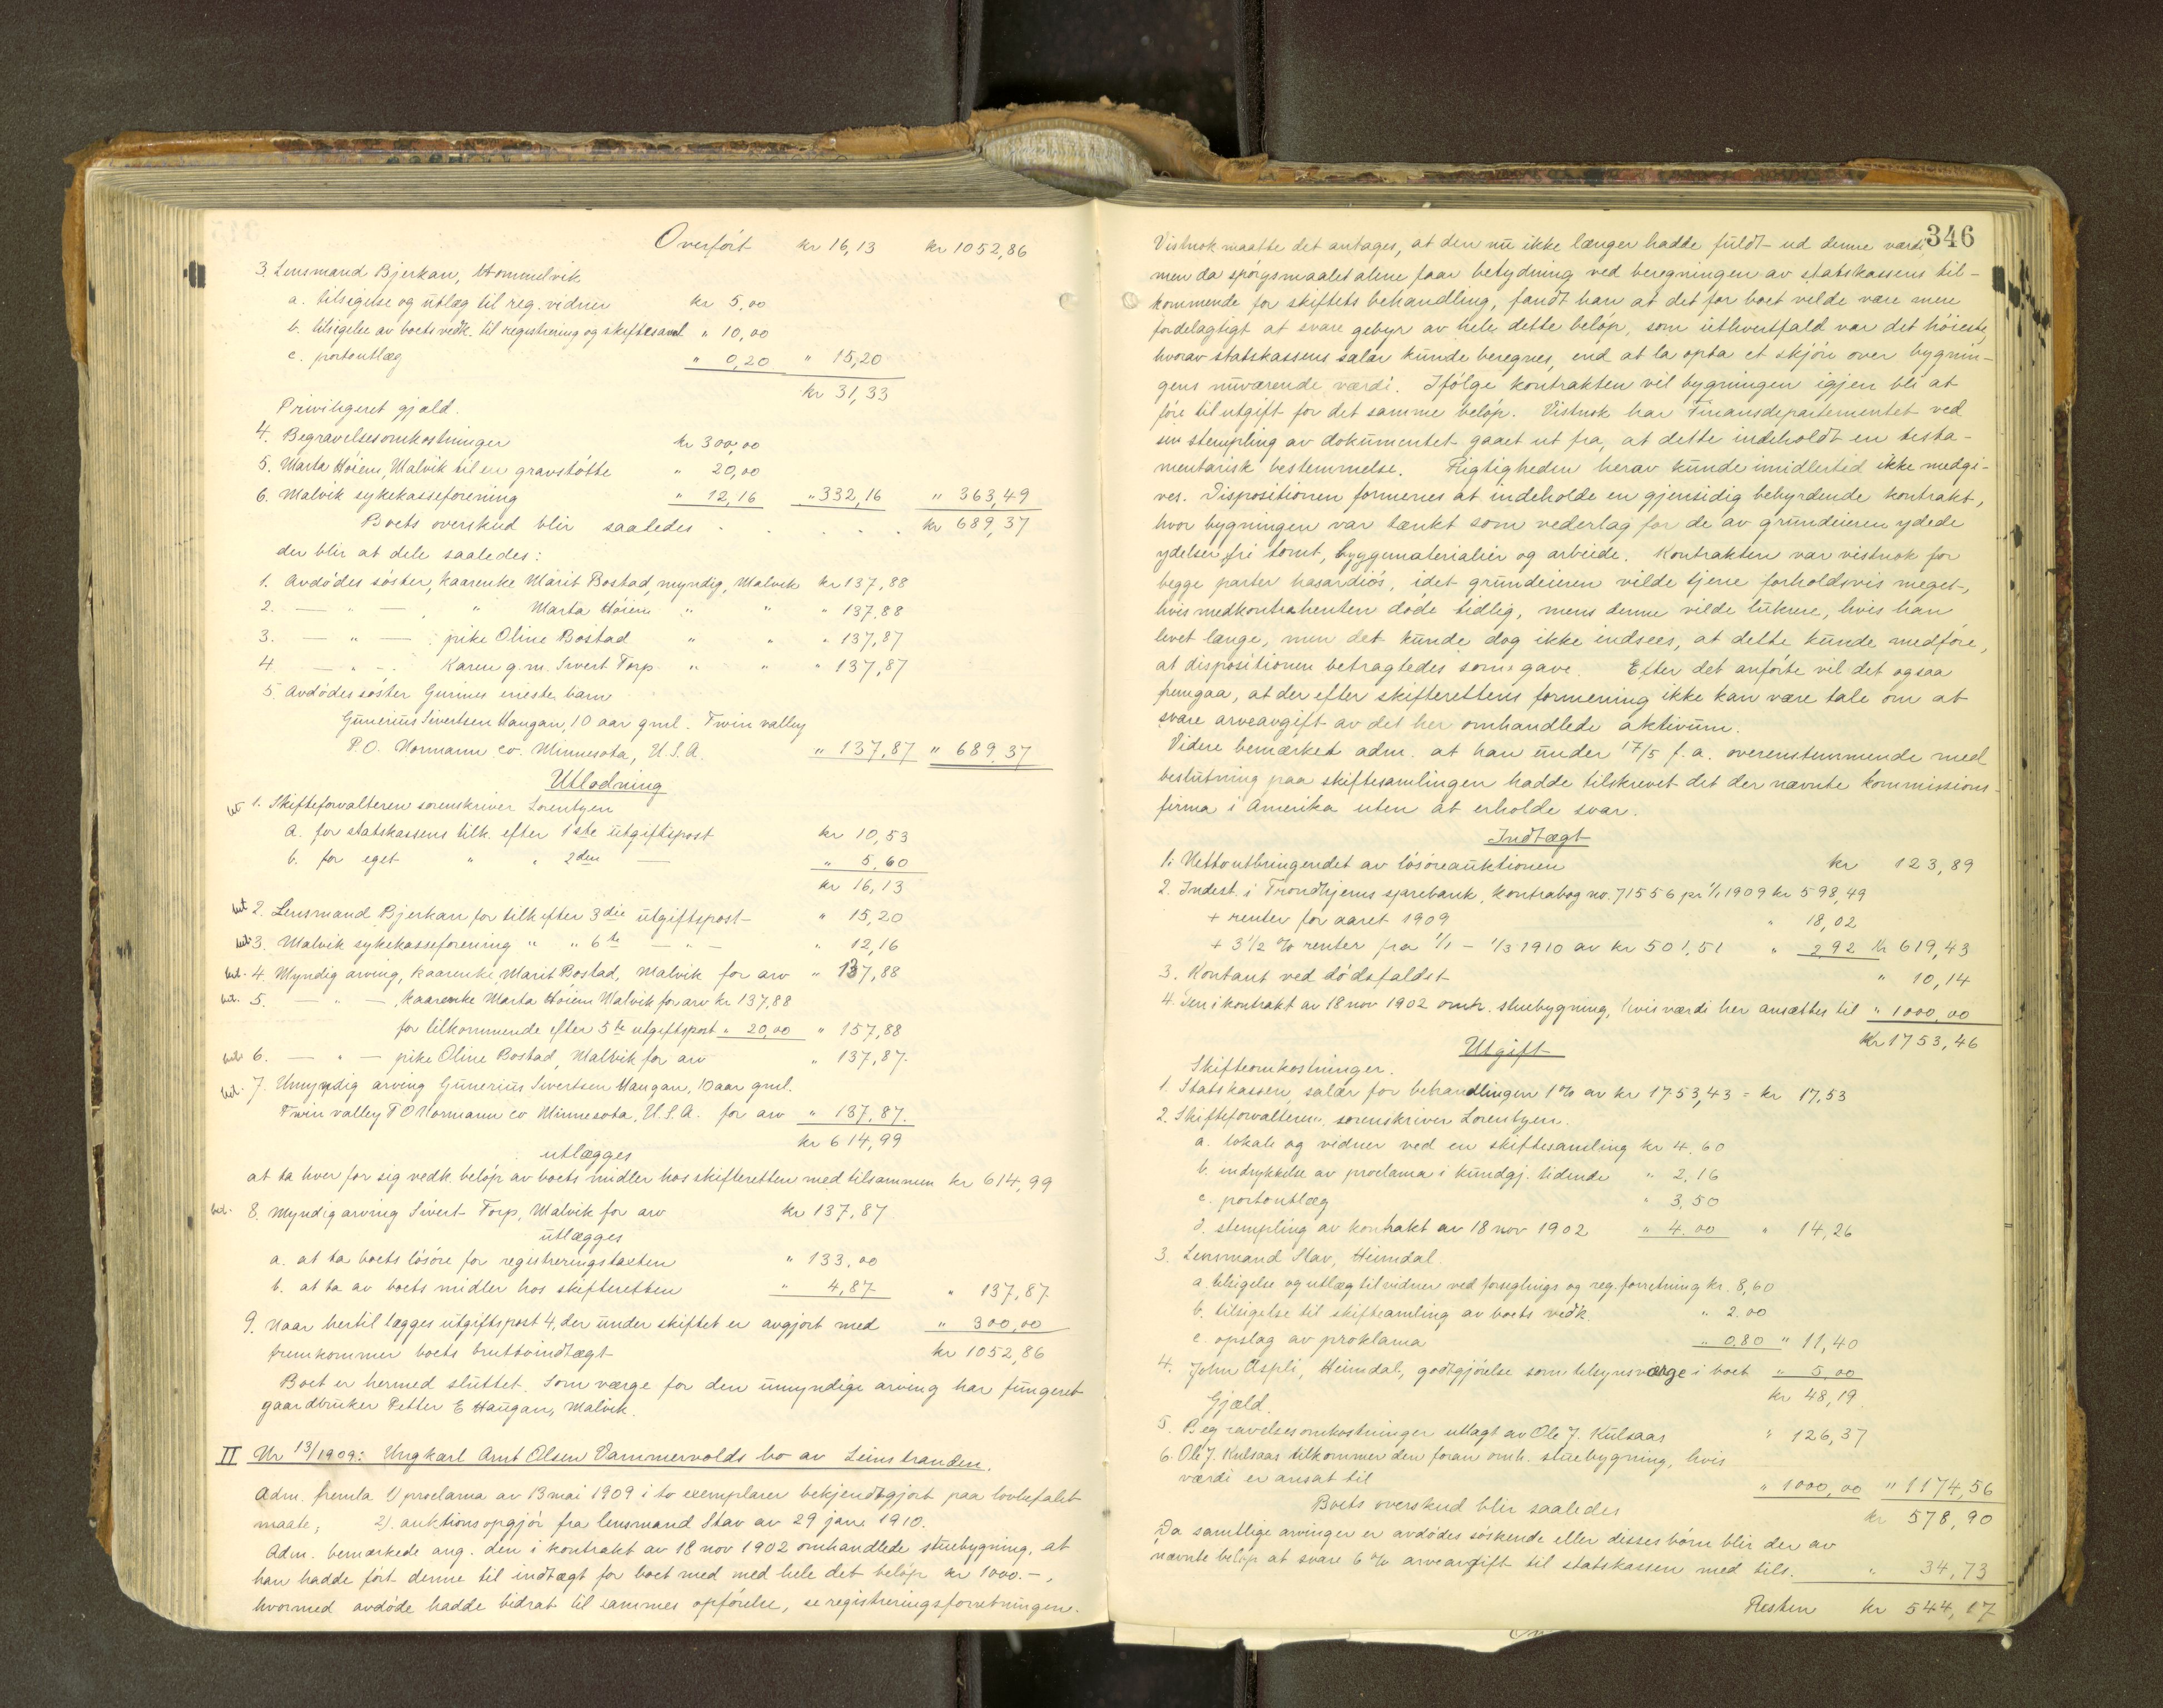 Overført kr 16,13 kr 1052,86
3. Lensmand Bjerkan, Hommelvik
a. tilsigelse og utlæg til reg. vidner kr 5,00
b. tilsigelse av boets vedk. til registrering og skiftesaml. " 10,00
c. portoutlæg " 0,20 " 15,20
kr 31,33
Priviligeret gjæld.
4. Begravelsesomkostninger kr 300,00
5. Marta Høiem, Malvik til en gravstøtte " 20,00
6. Malvik sykekasseforening " 12,16 " 332,16 " 363,49
Boets overskud blir saaledes . . . . kr 689,37
der blir at dele saaledes:
1. Avdødes søster, kaarenke Marit Bostad, myndig, Malvik kr 137,88
2. — " — , " Marta Høiem " " " 137,88
3. — " — : pike Oline Bostad " " " 137,87
4. — " — . Karen g.m. Sivert Torp " " " 137,87
5. Avdødes søster Gurines eneste barn
Gunerius Sivertsen Haugan, 10 aar gml. Twin valley
P.O. Normann co. Minnesota, U.S.A. " 137,87 " 689,37
Utlodning
bet. 1. Skifteforvalteren sorenskriver Lorentzen
a. for statskassens tilk. efter 1ste utgiftspost kr 10,53
b. for eget " " 2den — " 5,60
kr 16,13
bet 2. Lensmand Bjerkan for tilk efter 3die utgiftspost " 15,20
bet. 3. Malvik sykekasseforening " " 6te — " — " 12,16
bet. 4. Myndig arving, kaarenke Marit Bostad, Malvik for arv " 137,88
bet. 5. — " — , kaarenke Marta Høiem Malvik for arv kr 137,88
for tilkommende efter 5te utgiftspost " 20,00 " 157,88
bet. 6. — " — pike Oline Bostad, Malvik for arv " 137,87.
bet. 7. Umyndig arving Gunerius Sivertsen Haugan, 10 aar gml.
Twin valley P O Normann co Minnesota, U.S.A. for arv " 137,87.
kr 614,99
utlægges
at ta hver for sig vedk. beløp av boets midler hos skifteretten med tilsammen kr 614,99
bet. 8. Myndig arving Sivert Torp, Malvik for arv kr 137,87
utlægges
a. at ta boets løsøre for registreringstaxten " 133,00
b. at ta av boets midler hos skifteretten " 4,87 " 137,87
9. Naar hertil lægges utgiftspost 4, der under skiftet er avgjort med " 300,00
fremkommer boets bruttoindtægt kr 1052,86
Boet er hermed sluttet. Som værge for den umyndige arving har fungeret
gaardbruker Petter E Haugan, Malvik.
II Nr 13/1909: Ungkarl Arnt Olsen Vammervolds bo av Leinstranden.
Adm. fremla 1) proclama av 13 mai 1909 i to exemplarer bekjendtgjort paa lovbefalet
maate; 2) auktionsopgjør fra lensmand Stav av 29 jan. 1910.
Adm. bemærkede ang. den i kontrakt av 18 nov 1902 omhandlede stuebygning, at
han hadde ført denne til indtægt for boet med med hele det beløp kr 1000.-,
hvormed avdøde hadde bidrat til sammes opførelse, se registreringsforretningen.
346
Vistnok maatte det antages, at den nu ikke længer hadde fuldt ud denne værdi
men da spørgsmaalet alene faar betydning ved beregningen av statskassens til-
kommende for skiftets behandling, fandt han at det for boet vilde være mere
fordelagtigt at svare gebyr av hele dette beløp, som ialhvertfald var det høieste,
hvorav statskassens salær kunde beregnes, end at la opta et skjøn over bygnin-
gens nuværende værdi. Ifølge kontrakten vil bygningen igjen bli at
føre til utgift for det samme beløp. Vistnok har Finansdepartementet ved
sin stempling av dokumentet gaaet ut fra, at dette indeholdt en testa-
mentarisk bestemmelse. Rigtigheden herav kunde imidlertid ikke medgi-
ves. Dispositionen formenes at indeholde en gjensidig bebyrdende kontrakt,
hvor bygningen var tænkt som vederlag for de av grundeieren ydede
ydelser, fri tomt, byggematerialier og arbeide. Kontrakten var vistnok for
begge parter hasardiøs, idet grundeieren vilde tjene forholdsvis meget,
hvis medkontrahenten døde tidlig, mens denne vilde lukrere, hvis han
levet længe, men det kunde dog ikke indsees, at dette kunde medføre,
at dispositionen betragtedes som gave. Efter det anførte vil det ogsaa
fremgaa, at der efter skifterettens formening ikke kan være tale om at
svare arveavgift av det her omhandlede aktivum.
Videre bemærket adm. at han under 17/5 f.a. overenstemmende med
beslutning paa skiftesamlingen hadde tilskrevet det der nævnte kommissions-
firma i Amerika uten at erholde svar.
Indtægt
1. Nettoutbringendet av løsøreauktionen kr 123,89
2. Indest. i Trondhjems sparebank, kontrabog no. 71556 pr 1/1 1909 kr 598,49
+ renter for aaret 1909 " 18,02
+ 3 1/2 % renter fra 1/1 - 1/3 1910 av kr 501,51 " 292 kr 619,43
3. Kontant ved dødsfaldet " 10,14
4. Den i kontrakt av 18 nov 1902 omh. stuebygning, hvis værdi her ansættes til " 1000,00
Kr 1753,46
Utgift
Skifteomkostninger.
1. Statskassen, salær for behandlingen 1% av kr 1753,43 = kr 17,53
2. Skifteforvalteren, sorenskriver Lorentzen.
a. lokale og vidner ved en skiftesamling kr 4,60
b. indrykkelse av proclama i kundgj. tidende " 2,16
c. portoutlæg " 3,50
d. stempling av kontrakt av 18 nov 1902 " 4,00 " 14,26
3. Lensmand Stav, Heimdal.
a. tilsigelse og utlæg til vidner ved forseglings og reg. forretning kr. 8,60
b. tilsigelse til skiftesamling av boets vedk. " 2.00
c. opslag av proklama " 0.80 " 11,40
4. John Aspli, Heimdal, godtgjørelse som tilsynsværge i boet " 5,00
kr 48,19
Gjæld.
5. Begravelsesomkostninger utlagt av Ole J. Kulsaas " 126,37
6. Ole J. Kulsaas tilkommer den foran omh. stuebygning, hvis
værdi er ansat til " 1000,00 " 1174,56
Boets overskud blir saaledes kr 578,90
Da samtlige arvinger er avdødes søskende eller disses børn blir der av
nævnte beløp at svare 6 % arveavgift til statskassen med tils. " 34,73
Resten kr 544,17